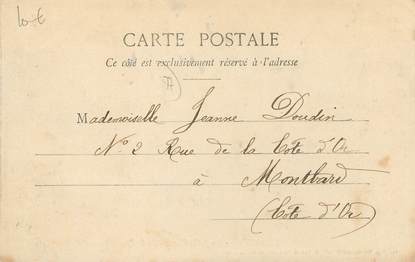 10 €
CARTE POSTALE
Ce côté est exclusivement réservé à l'adresse
Mademoiselle Jeanne Doudin
N° 2 Rue de la Côte d'Or
à Montbard
(Côte d'Or)